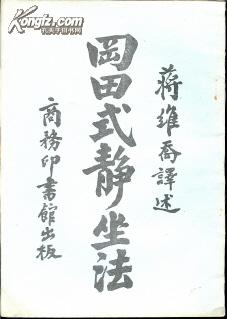 KONGFZ.COM
孔夫子旧书网
蔣維喬譯述
岡田式靜坐法
商務印書館出板